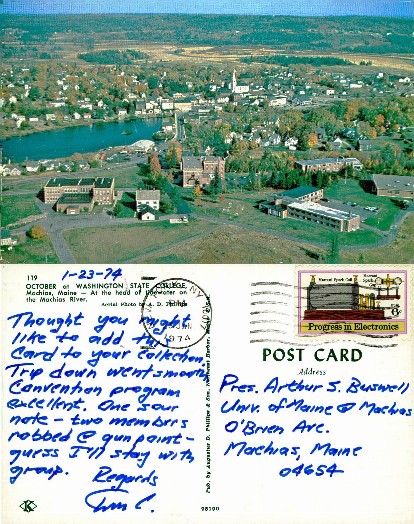 119
OCTOBER at WASHINGTON STATE COLLEGE,
Machias, Maine — At the head of tidewater on
the Machias River.
Aerial Photo by A. D. Phillips
1-23-74
Thought you might
like to add this
card to your collection.
Trip down went smooth
Convention program
excellent. One sour
note - two members
robbed @ gun point -
guess I'll stay with
group.
Regards
NY
JAN
1974
Pub. by Augustus D. Phillips & Son, Northeast Harbor,
98190
K
Marconi Spark Coil
Marconi Spark Gap
6c
Progress in Electronics
POST CARD
Address
Pres. Arthur S. Buswell
Univ. of Maine @ Machias
O'Brien Ave.
Machias, Maine
04654